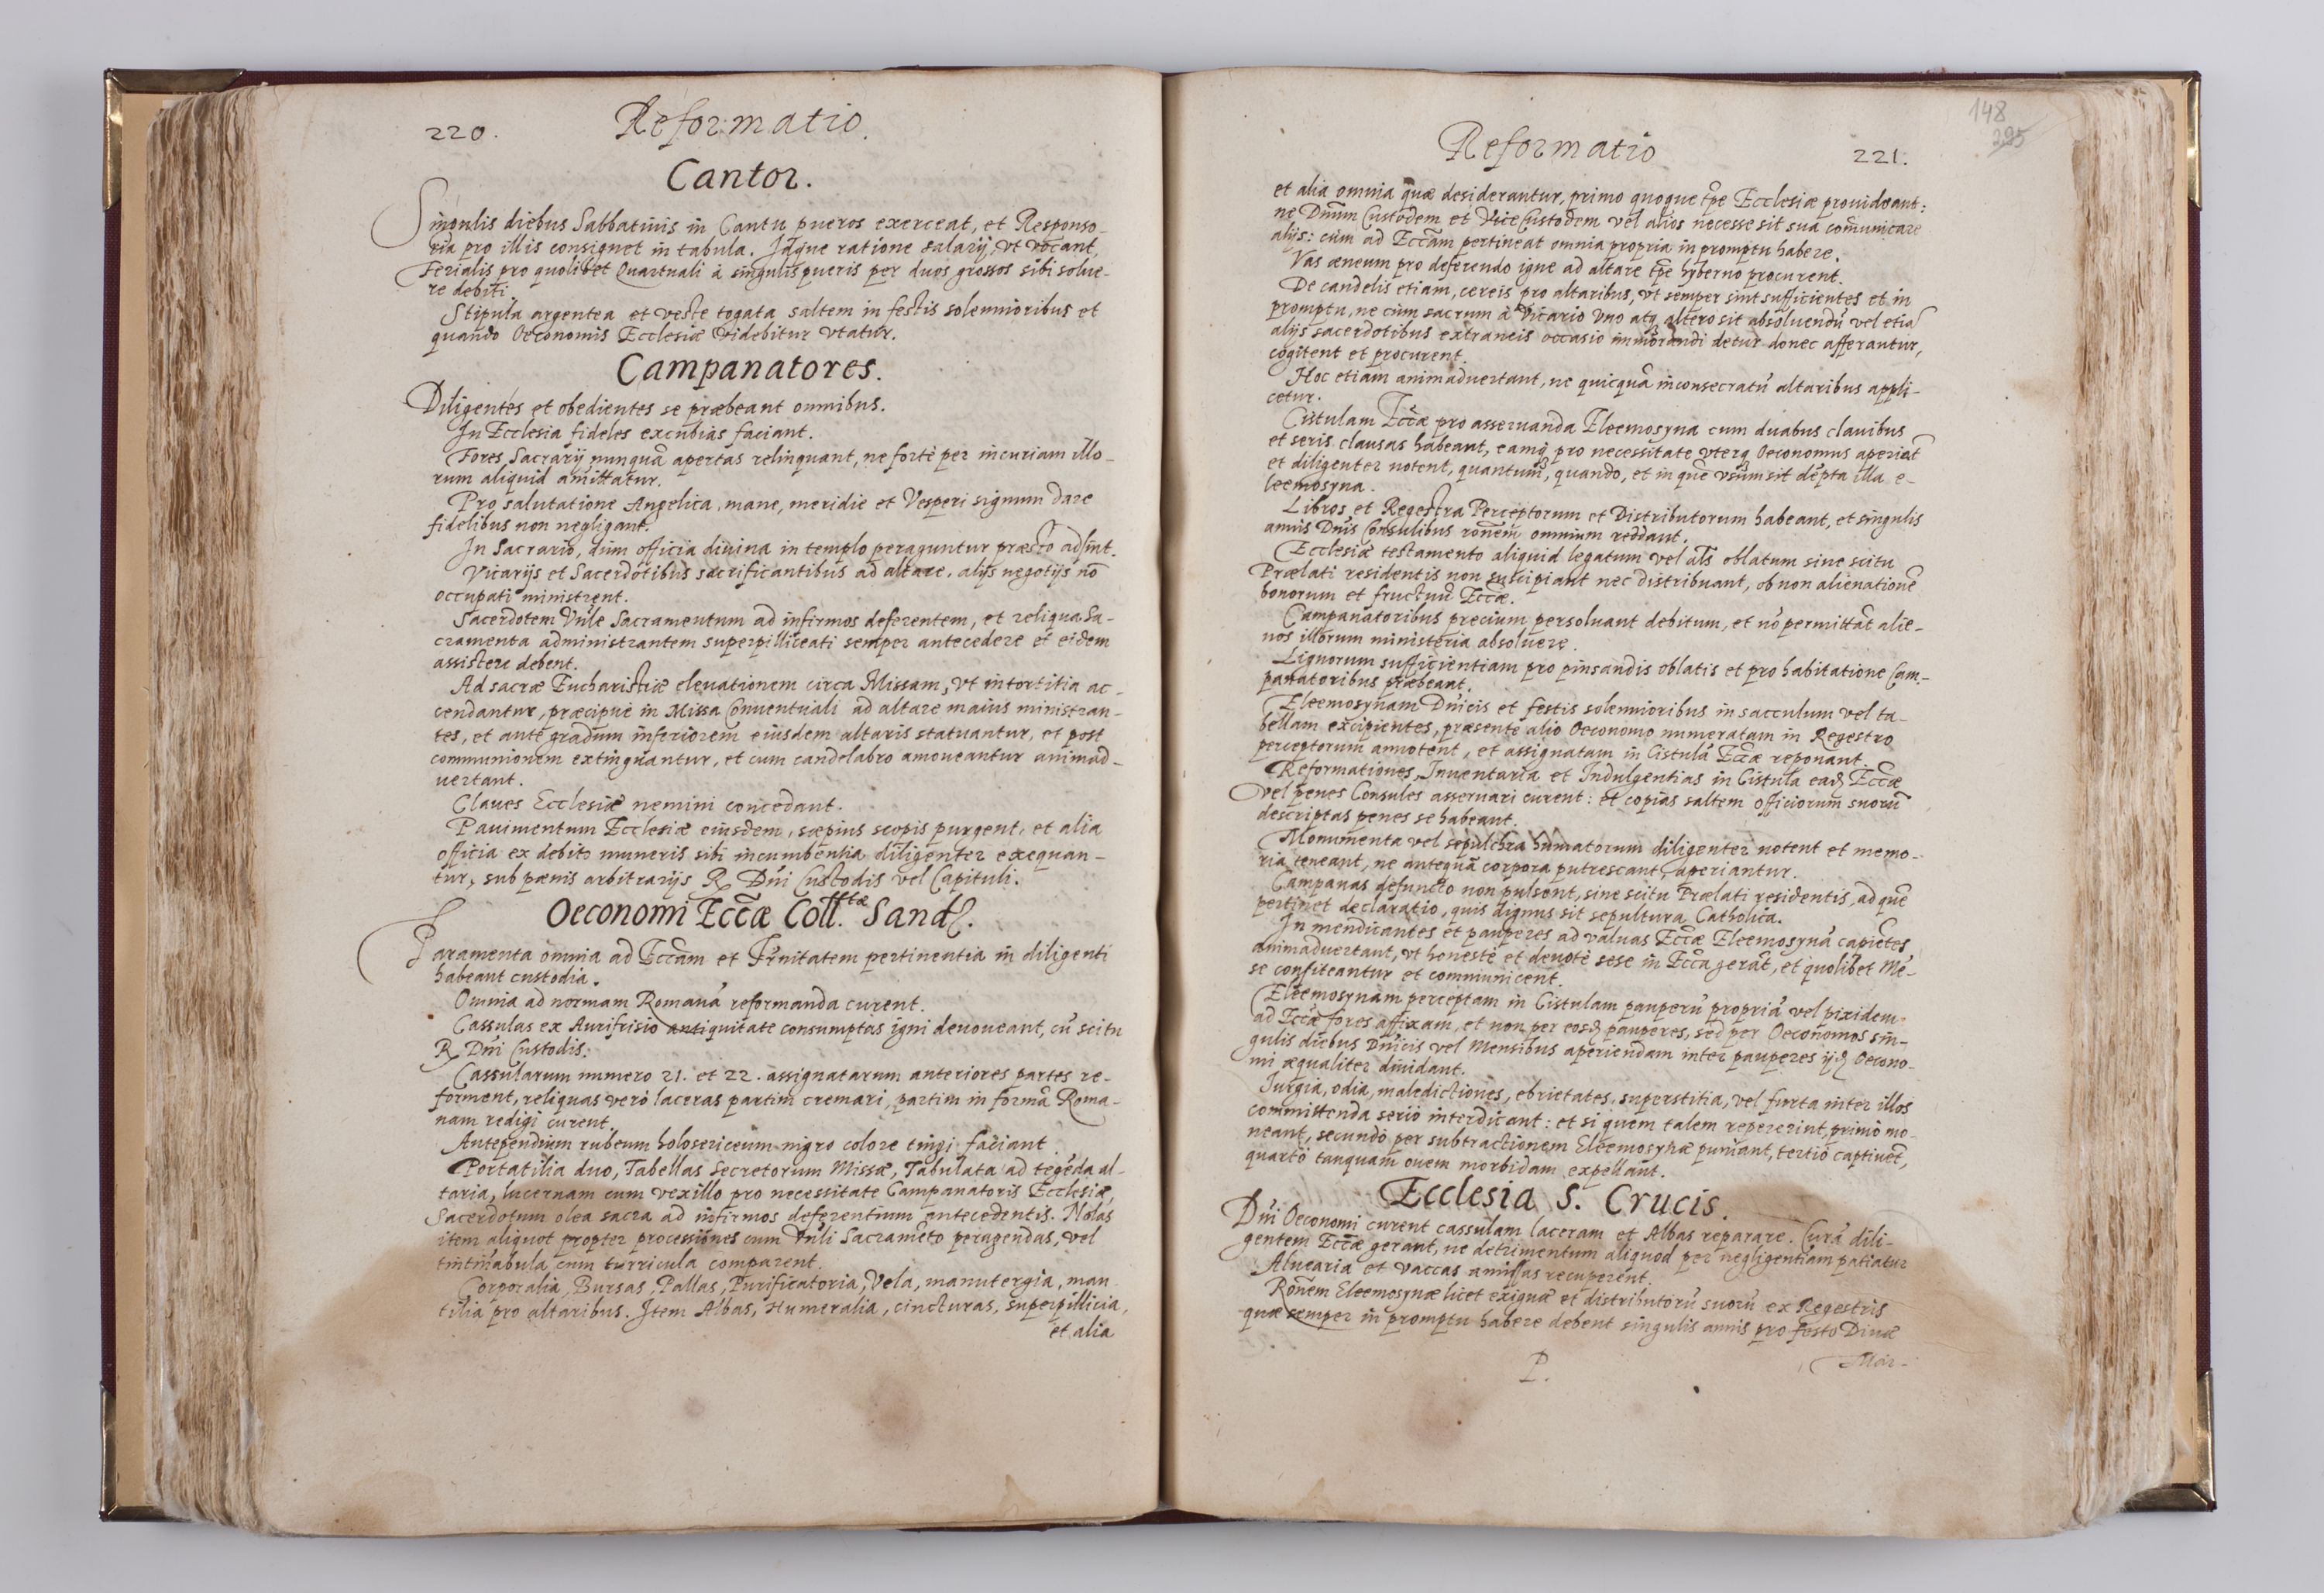 220.
Reformatio.
Cantor.
Singulis diebus Sabbatinis in Cantu pueros exerceat, et Responso-
ria pro illis consignet in tabula. Idque ratione salarij, vt vocant,
Ferialis pro quolibet Quartuali à singulis pueris per duos grossos sibi solue-
re debiti.
Stipula argentea et veste togata saltem in festis solennioribus et
quando Oeconomis Ecclesiæ videbitur vtatur.
Campanatores.
Diligentes et obedientes se præbeant omnibus.
In Ecclesia fideles excubias faciant.
Fores Sacrarij nunquã apertas relinquant, ne fortè per incuriam illo-
rum aliquid amittatur.
Pro salutatione Angelica, mane, meridie et Vesperi signum dare
fidelibus non negligant.
In Sacrario, dum officia diuina in templo peraguntur præsto adsint.
Vicarijs et Sacerdotibus sacrificantibus ad altare, alijs negotijs nõ
occupati ministrent.
Sacerdotem Vn̄le Sacramentum ad infirmos deferentem, et reliqua Sa-
cramenta administrantem superpilliceati semper antecedere et eidem
assistere debent.
Ad sacræ Eucharistiæ eleuationem circa Missam, vt intortitia ac-
cendantur, præcipuè in Missa Conuentuali ad altare maius ministran-
tes, et ante gradum inferiorem eiusdem altaris statuantur, et post
communionem extinguantur, et cum candelabro amoueantur animad-
uertant.
Claues Ecclesiæ nemini concedant.
Pauimentum Ecclesiæ eiusdem, sæpius scopis purgent, et alia
officia ex debito muneris sibi incumbentia diligenter exequan-
tur, sub pænis arbitrarijs R. Dn̄i Custodis vel Capituli.
Oeconomi Ecc̄æ Coll.ttæ Sand.
Paramenta omnia ad Ecc̄am et Frnitatem pertinentia in diligenti
habeant custodia.
Omnia ad normam Romanã reformanda curent.
Cassulas ex Aurifrisio antiquitate consumptas igni deuoueant, cũ scitu
R. Dn̄i Custodis.
Cassularum numero 21. et 22. assignatarum anteriores partes re-
forment, reliquas verò laceras partim cremari, partim in formã Roma-
nam redigi curent.
Antependium rubeum holosericeum nigro colore tingi faciant.
Portatilia duo, Tabellas Secretorum Missæ, Tabulata ad tegẽda al-
taria, lucernam cum vexillo pro necessitate Campanatoris Ecclesiæ,
Sacerdotum olea sacra ad infirmos deferentium antecedentis. Nolas
item aliquot propter processiones cum Vn̄li Sacramẽto peragendas, vel
tintinabula cum turricula comparent.
Corporalia, Bursas, Pallas, Purificatoria, Vela, manutergia, man-
tilia pro altaribus. Item Albas, Humeralia, cincturas, superpillicia,
et alia
148
Reformatio
221.
et alia omnia quæ desiderantur, primo quoque tp̄e Ecclesiæ prouideant:
ne Dn̄um Custodem et ViceCustodem vel alios necesse sit sua com̄unicare
alijs: cùm ad Ecc̄am pertineat omnia propria in promptu habere.
Vas æneum pro deferendo igne ad altare tp̄e hyberno procurent.
De candelis etiam, cereis pro altaribus, vt semper sint sufficientes et in
promptu, ne cùm sacrum à Vicario vno atq altero sit absoluendũ vel etiã
alijs sacerdotibus extraneis occasio immorandi detur donec afferantur,
cogitent et procurent.
Hoc etiam animaduertant, ne quicquã inconsecratũ altaribus appli-
cetur.
Cistulam Ecc̄æ pro asseruanda Eleemosyna cum duabus clauibus
et seris clausas habeant, eamq pro necessitate vterq Oeconomus aperiat
et diligenter notent, quantum, quando, et in quẽ vsum sit dẽpta illa e-
leemosyna.
Libros et Regestra Perceptorum et Distributorum habeant, et singulis
annis Dn̄is Consulibus rōnem omnium reddant.
Ecclesiæ testamento aliquid legatum vel al̄s oblatum sine scitu
Prælati residentis non suscipiant nec distribuant, ob non alienationẽ
bonorum et fructuũ Ecc̄æ.
Campanatoribus precium persoluant debitum, et nõ permittãt alie-
nos illorum ministeria absoluere.
Lignorum sufficientiam pro pinsandis oblatis et pro habitatione Cam-
panatoribus præbeant.
Eleemosynam Dn̄icis et festis solennioribus in sacculum vel ta-
bellam excipientes, præsente alio Oeconomo numeratam in Regestro
perceptorum annotent, et assignatam in Cistulã Ecc̄æ reponant.
Reformationes, Inuentaria et Indulgentias in Cistula eadẽ Ecc̄æ
vel penes Consules asseruari curent: et copias saltem officiorum suorũ
descriptas penes se habeant.
Monumenta vel sepulchra humatorum diligenter notent et memo-
ria teneant, ne antequã corpora putrescant, aperiantur.
Campanas defuncto non pulsent, sine scitu Prælati residentis, ad quẽ
pertinet declaratio, quis dignus sit sepultura Catholica.
In mendicantes et pauperes ad valuas Ecc̄æ Eleemosynã capiẽtes
animaduertant, vt honestè et deuotè sese in Ecc̄a gerãt, et quolibet Mẽ-
se confiteantur et communicent.
Eleemosynam perceptam in Cistulam pauperũ propriã vel pixidem
ad Ecc̄æ fores affixam, et non per eosd pauperes, sed per Oeconomos sin-
gulis diebus Dn̄icis vel Mensibus aperiendam inter pauperes ijd Oecono-
mi æqualiter diuidant.
Iurgia, odia, maledictiones, ebrietates, superstitia, vel furta inter illos
committenda seriò interdicant: et si quem talem repererint, primò mo-
neant, secundò per subtractionem Eleemosynæ puniant, tertiò captiuẽt,
quartò tanquam ouem morbidam expellant.
Ecclesia S. Crucis.
Dn̄i Oeconomi curent cassulam laceram et Albas reparare. Curã dili-
gentem Ecc̄æ gerant, ne detrimentum aliquod per negligentiam patiatur
Aluearia et vaccas amissas recuperent.
Rōnem Eleemosynæ licet exiguæ et distributorũ suorũ ex Regestris
quæ semper in promptu habere debent singulis annis pro festo Diuæ
P.
Mar-